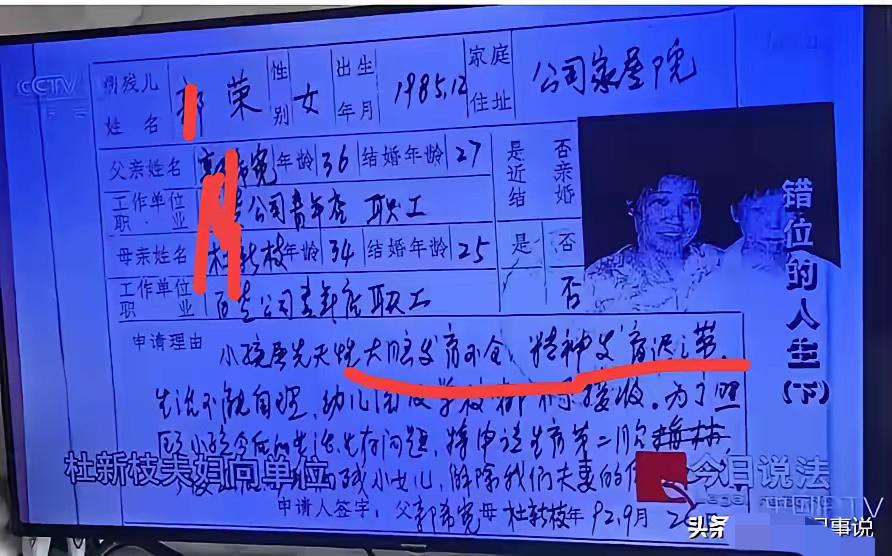 CCTV
病残儿姓名 郭荣 性别 女 出生年月 1985.12 家庭住址 公司家居院
父亲姓名 郭希宽 年龄 36 结婚年龄 27 是否近亲结婚
工作单位职·业 公司青年店 职工
母亲姓名 杜新枝 年龄 34 结婚年龄 25 是 否
工作单位职业 公司青年店职工 否
申请理由 小孩属先天性大脑发育不全,精神发育迟滞。
生活不能自理,幼儿园及学校都不接收。为了照
小孩今后的生活 问题,特申请生育第二
小女儿,解除我们夫妻的
申请人签字:父郭希宽母杜新枝 年92.9月
错位的人生(下)
杜新枝夫妇向单位
今日说法
头条
事说